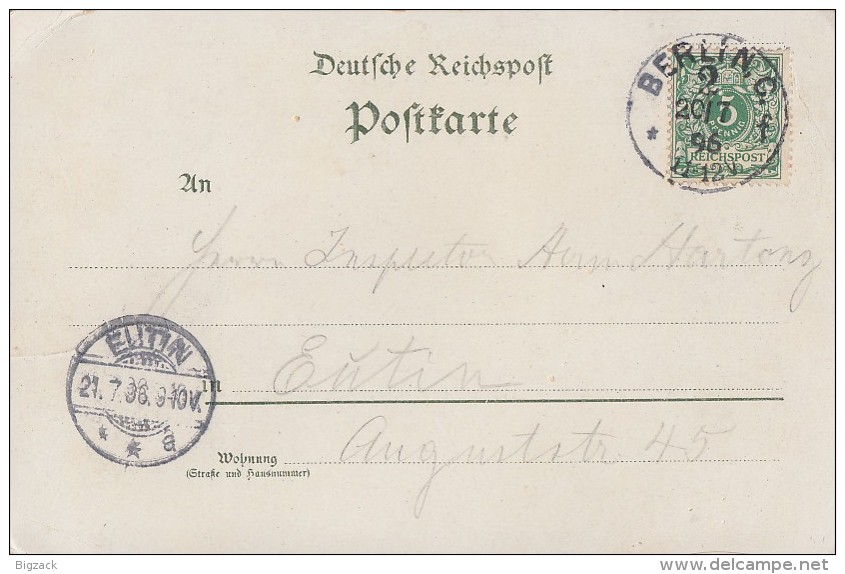 Deutsche Reichspost
Postkarte
BERLIN. C.
2
20/7
96
11-12V.
f
5
PFENNIG
REICHSPOST
An
Herrn Inspector Herm Hartong
EUTIN
21. 7. 96. 9-10V.
a
in
Eutin
Auguststr. 45
Wohnung
(Straße und Hausnummer)
Bigzack
delcampe.net